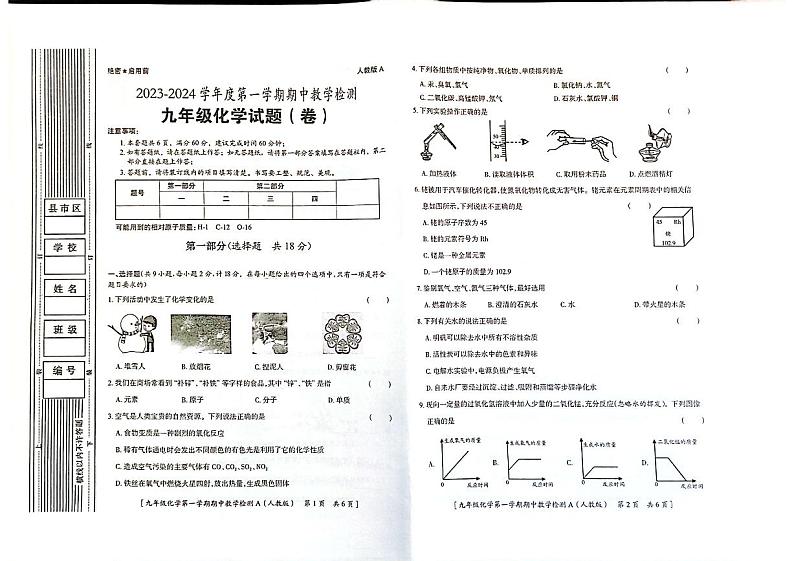 绝密★启用前
人教版 A
2023-2024 学年度第一学期期中教学检测
九年级化学试题（卷）
注意事项：
1. 本套题共 6 页，满分 60 分，建议完成时间 60 分钟；
2. 如有答题纸，请在答题纸上作答；如无答题纸，请将第一部分答案填写在答题栏内，第二
部分直接在题上作答；
3. 答题前，请将装订线内的项目填写清楚。书写要工整、规范、美观。
题号 第一部分 第二部分
一 二 三 四
可能用到的相对原子质量：H-1 C-12 O-16
第一部分（选择题 共 18 分）
一、选择题（共 9 小题，每小题 2 分，计 18 分，在每小题给出的四个选项中，只有一项是符合
题目要求的）
1. 下列活动中发生了化学变化的是 （ ）
A. 堆雪人 B. 放烟花 C. 捏泥人 D. 剪窗花
2. 我们在商场常看到“补锌”、“补铁”等字样的食品，其中“锌”、“铁”是指 （ ）
A. 元素 B. 原子 C. 分子 D. 单质
3. 空气是人类宝贵的自然资源。下列说法正确的是 （ ）
A. 食物变质是一种剧烈的氧化反应
B. 稀有气体通电时会发出不同颜色的有色光是利用了它的化学性质
C. 造成空气污染的主要气体有 CO、CO₂、SO₂、NO₂
D. 铁丝在氧气中燃烧火星四射，放出热量，生成黑色固体
[ 九年级化学第一学期期中教学检测 A（人教版） 第 1 页 共 6 页 ]
县市区
学校
姓名
班级
编号
装线以内不许答题
上
装
订
线
下
4. 下列各组物质中按纯净物、氧化物、单质排列的是 （ ）
A. 汞、臭氧、氢气 B. 氯化钠、水、氮气
C. 二氧化碳、高锰酸钾、氖气 D. 石灰水、氯酸钾、铜
5. 下列实验操作正确的是 （ ）
A. 加热液体 B. 读取液体体积 C. 取用粉末药品 D. 点燃酒精灯
6. 铑被用于汽车催化转化器，使氮氧化物转化成无害气体。铑元素在元素周期表中的相关信
息如图所示。下列说法不正确的是 （ ）
A. 铑的原子序数为 45
B. 铑的元素符号为 Rh
C. 铑是一种金属元素
D. 一个铑原子的质量为 102.9
45 Rh
铑
102.9
7. 鉴别氧气、空气、氮气三种气体，最好选用 （ ）
A. 燃着的木条 B. 澄清的石灰水 C. 水 D. 带火星的木条
8. 下列有关水的说法正确的是 （ ）
A. 明矾可以除去水中所有不溶性杂质
B. 活性炭可以除去水中的色素和异味
C. 电解水实验中，电源负极产生氧气
D. 自来水厂要经过沉淀、过滤、吸附和蒸馏等步骤净化水
9. 现向一定量的过氧化氢溶液中加入少量的二氧化锰，充分反应（忽略水的挥发）。下列图像
正确的是 （ ）
A. 生成氧气的质量 0 反应时间
B. 生成氧气的质量 0 反应时间
C. 生成水的质量 0 反应时间
D. 二氧化锰的质量 0 反应时间
[ 九年级化学第一学期期中教学检测 A（人教版） 第 2 页 共 6 页 ]